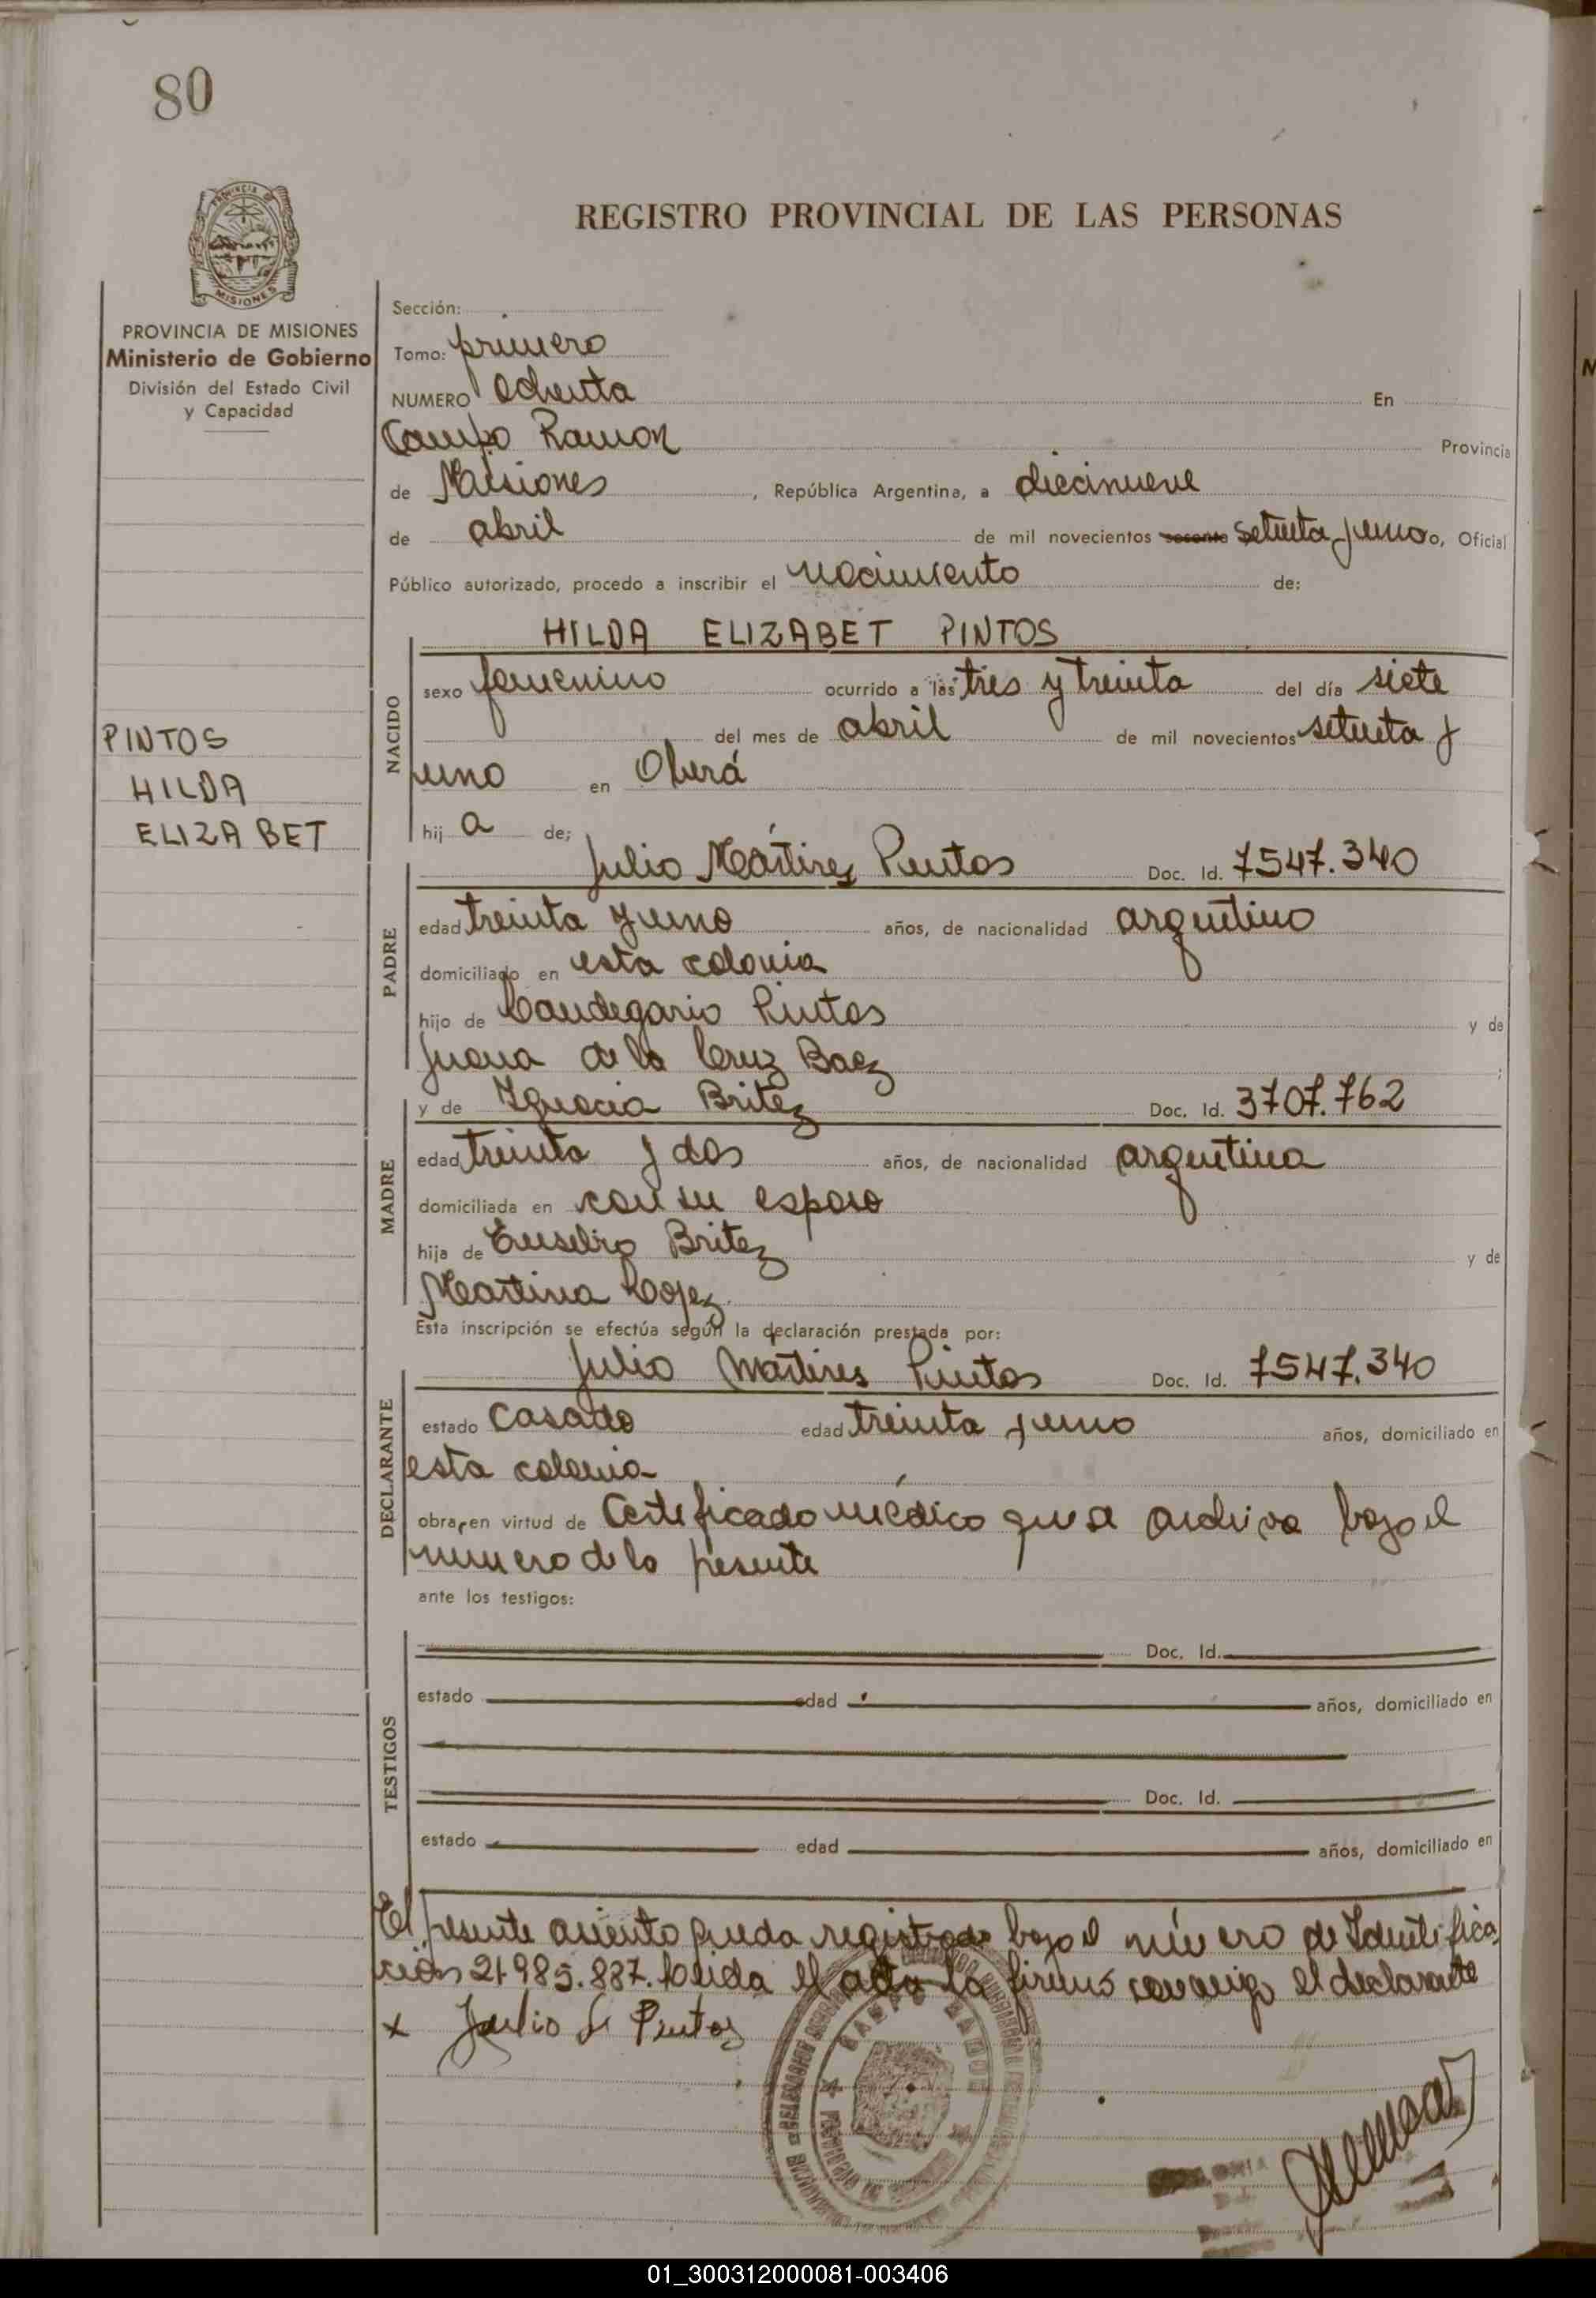 80
PROVINCIA DE
MISIONES
REGISTRO PROVINCIAL DE LAS PERSONAS
PROVINCIA DE MISIONES
Ministerio de Gobierno
División del Estado Civil
y Capacidad
Sección:
Tomo: primero
NUMERO Ochenta En
Campo Ramon Provincia
de Misiones, República Argentina, a diecinueve
de abril de mil novecientos sesenta setenta y uno o, Oficial
Público autorizado, procedo a inscribir el nacimiento de:
HILDA ELIZABET PINTOS
PINTOS
HILDA
ELIZABET
NACIDO
sexo femenino ocurrido a las tres y treinta del día siete
del mes de abril de mil novecientos setenta y
uno en Oberá
hij a de;
Julio Mártires Pintos Doc. Id. 7547.340
PADRE
edad treinta y uno años, de nacionalidad argentino
domiciliado en esta colonia
hijo de Candegario Pintos y de
Juana de la Cruz Baez ;
MADRE
y de Ignacia Britez Doc. Id. 3707.762
edad treinta y dos años, de nacionalidad argentina
domiciliada en con su esposo
hija de Eusebio Britez y de
Martina Lopez
Esta inscripción se efectúa según la declaración prestada por:
DECLARANTE
Julio Martires Pintos Doc. Id. 7547.340
estado casado edad treinta y uno años, domiciliado en
esta colonia
obra, en virtud de Certificado médico que se archiva bajo el
numero de la presente
ante los testigos:
TESTIGOS
Doc. Id.
estado edad años, domiciliado en
Doc. Id.
estado edad años, domiciliado en
El presente asiento queda registrado bajo el número de Identifica
ción 21.985.887. Leida el acta la firma conmigo el declarante
x Julio Pintos
01_300312000081-003406